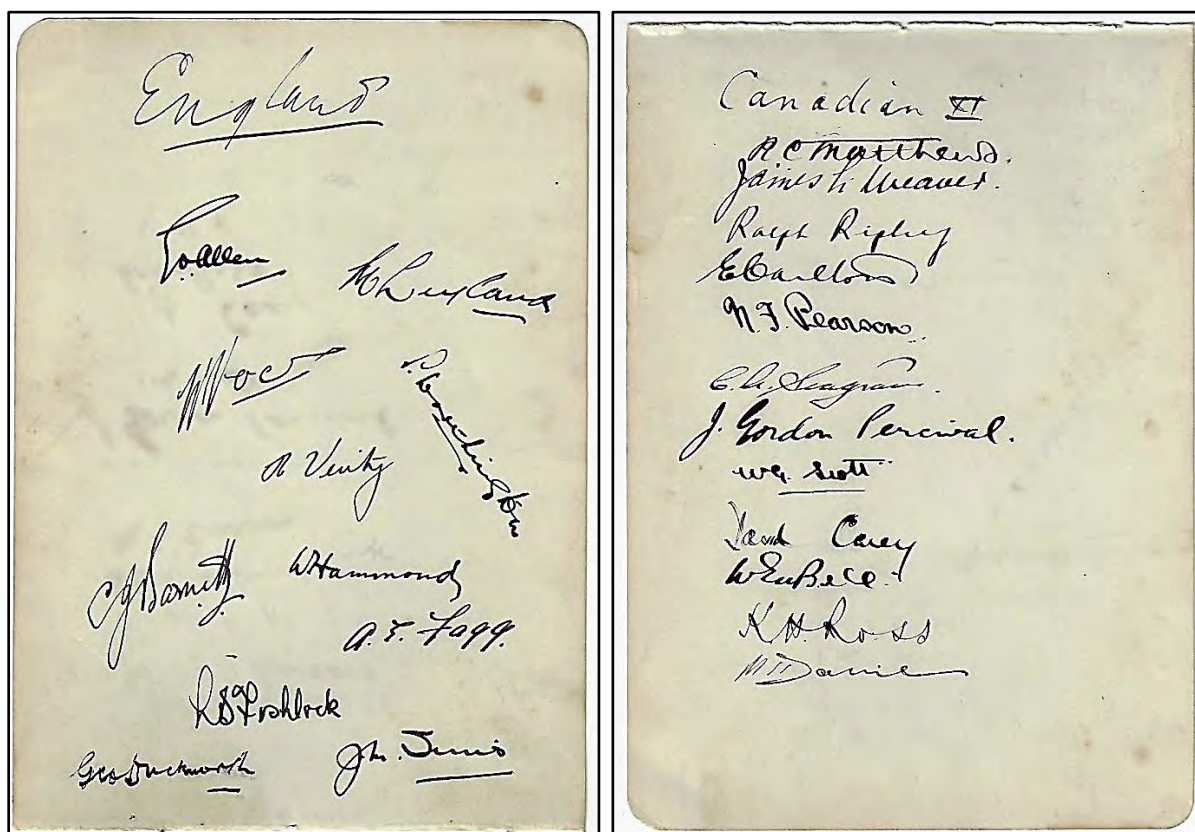 England
G.O. Allen
M Leyland
W Voce
T. Worthington
H Verity
C J Barnett
W Hammond
A. E. Fagg.
Geo Duckworth
Jh. 
Canadian XI
R C Matthews.
James H Weaver.
Ralph Ripley
E Carlton
N. F. Pearson.
C. A. Seagram.
J. Gordon Percival.
W.G. Scott
David Carey
W E N Bell.
K H Ross